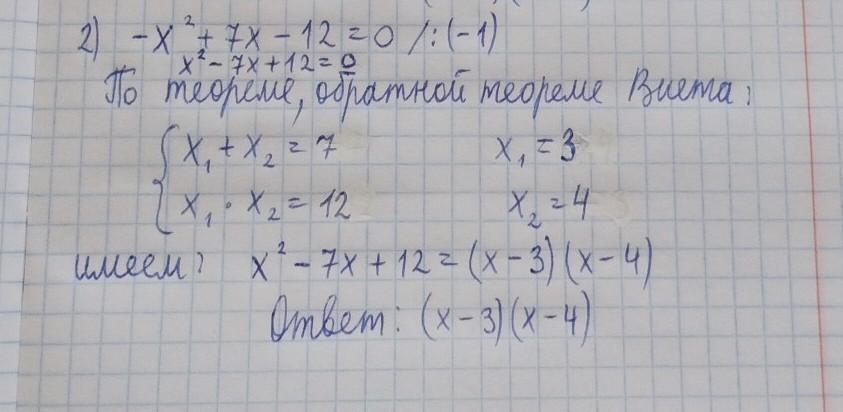 2) -x² + 7x - 12 = 0 /:(-1)
x² - 7x + 12 = 0
По теореме, обратной теореме Виета:
{ x₁ + x₂ = 7 x₁ = 3
x₁ · x₂ = 12 x₂ = 4
имеем: x² - 7x + 12 = (x - 3)(x - 4)
Ответ: (x - 3)(x - 4)